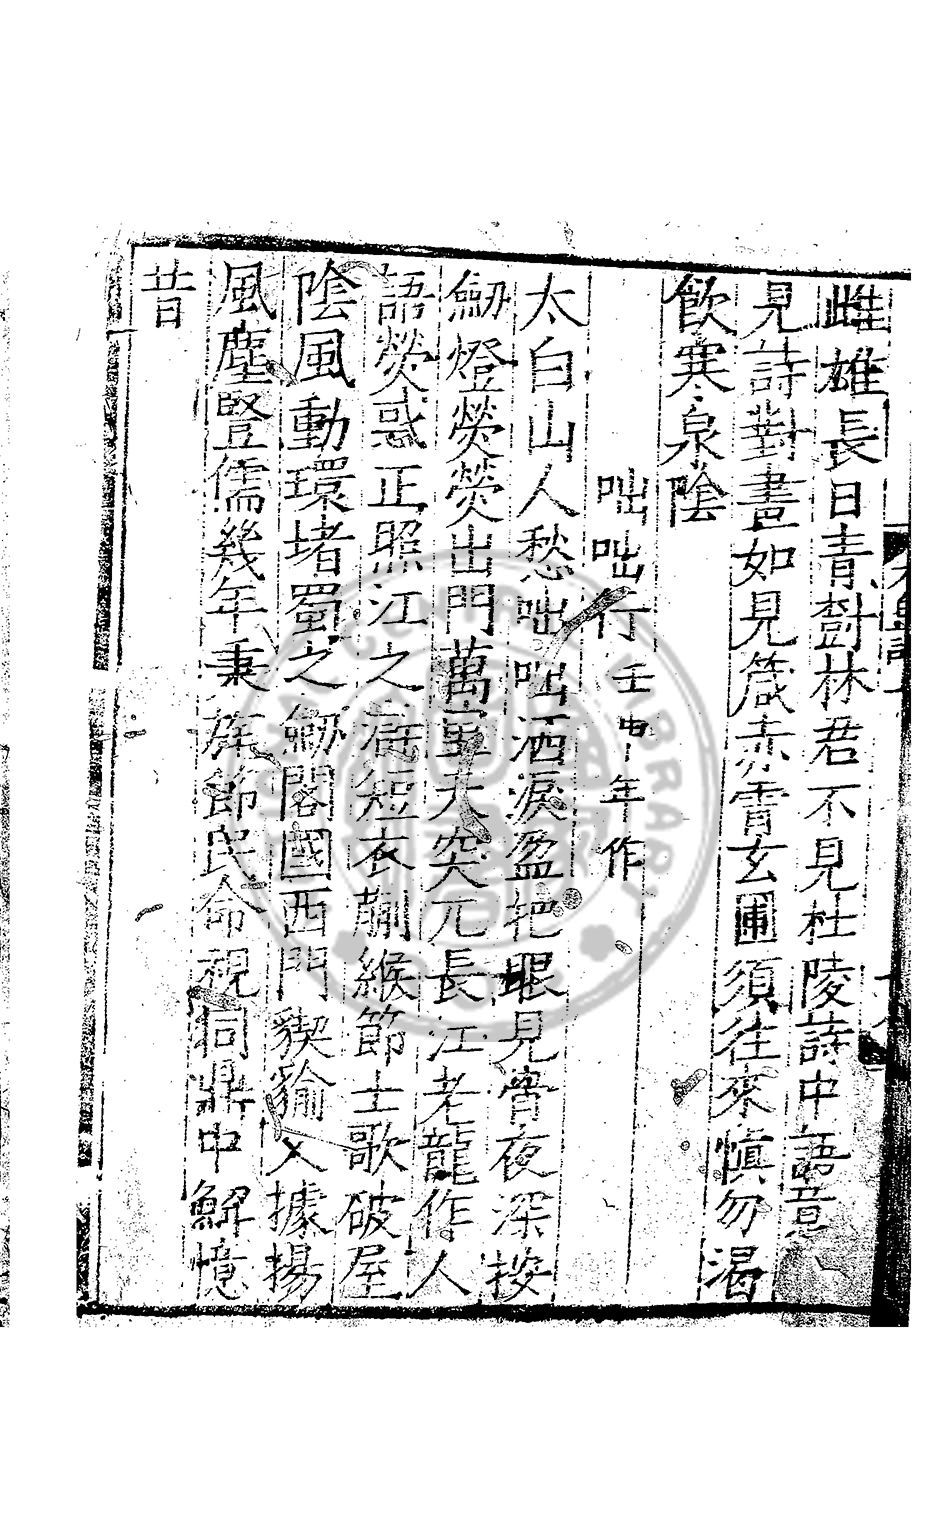 雌雄長日青樹林君不見杜陵詩中語意
見詩對畫如見箴赤霄玄圃須往來慎勿渴
飲寒泉陰
咄咄行壬申年作
太白山人愁咄咄洒淚盈把眼見宵夜深按
劒燈熒熒出門萬軍犬突兀長江老龍作人
語熒惑正照江之滸短衣蒯緱節士歌破屋
陰風動環堵蜀之劒閣國西門猰貐人據揚
風塵豎儒幾年秉旄節民命視同鼎中解憶
昔